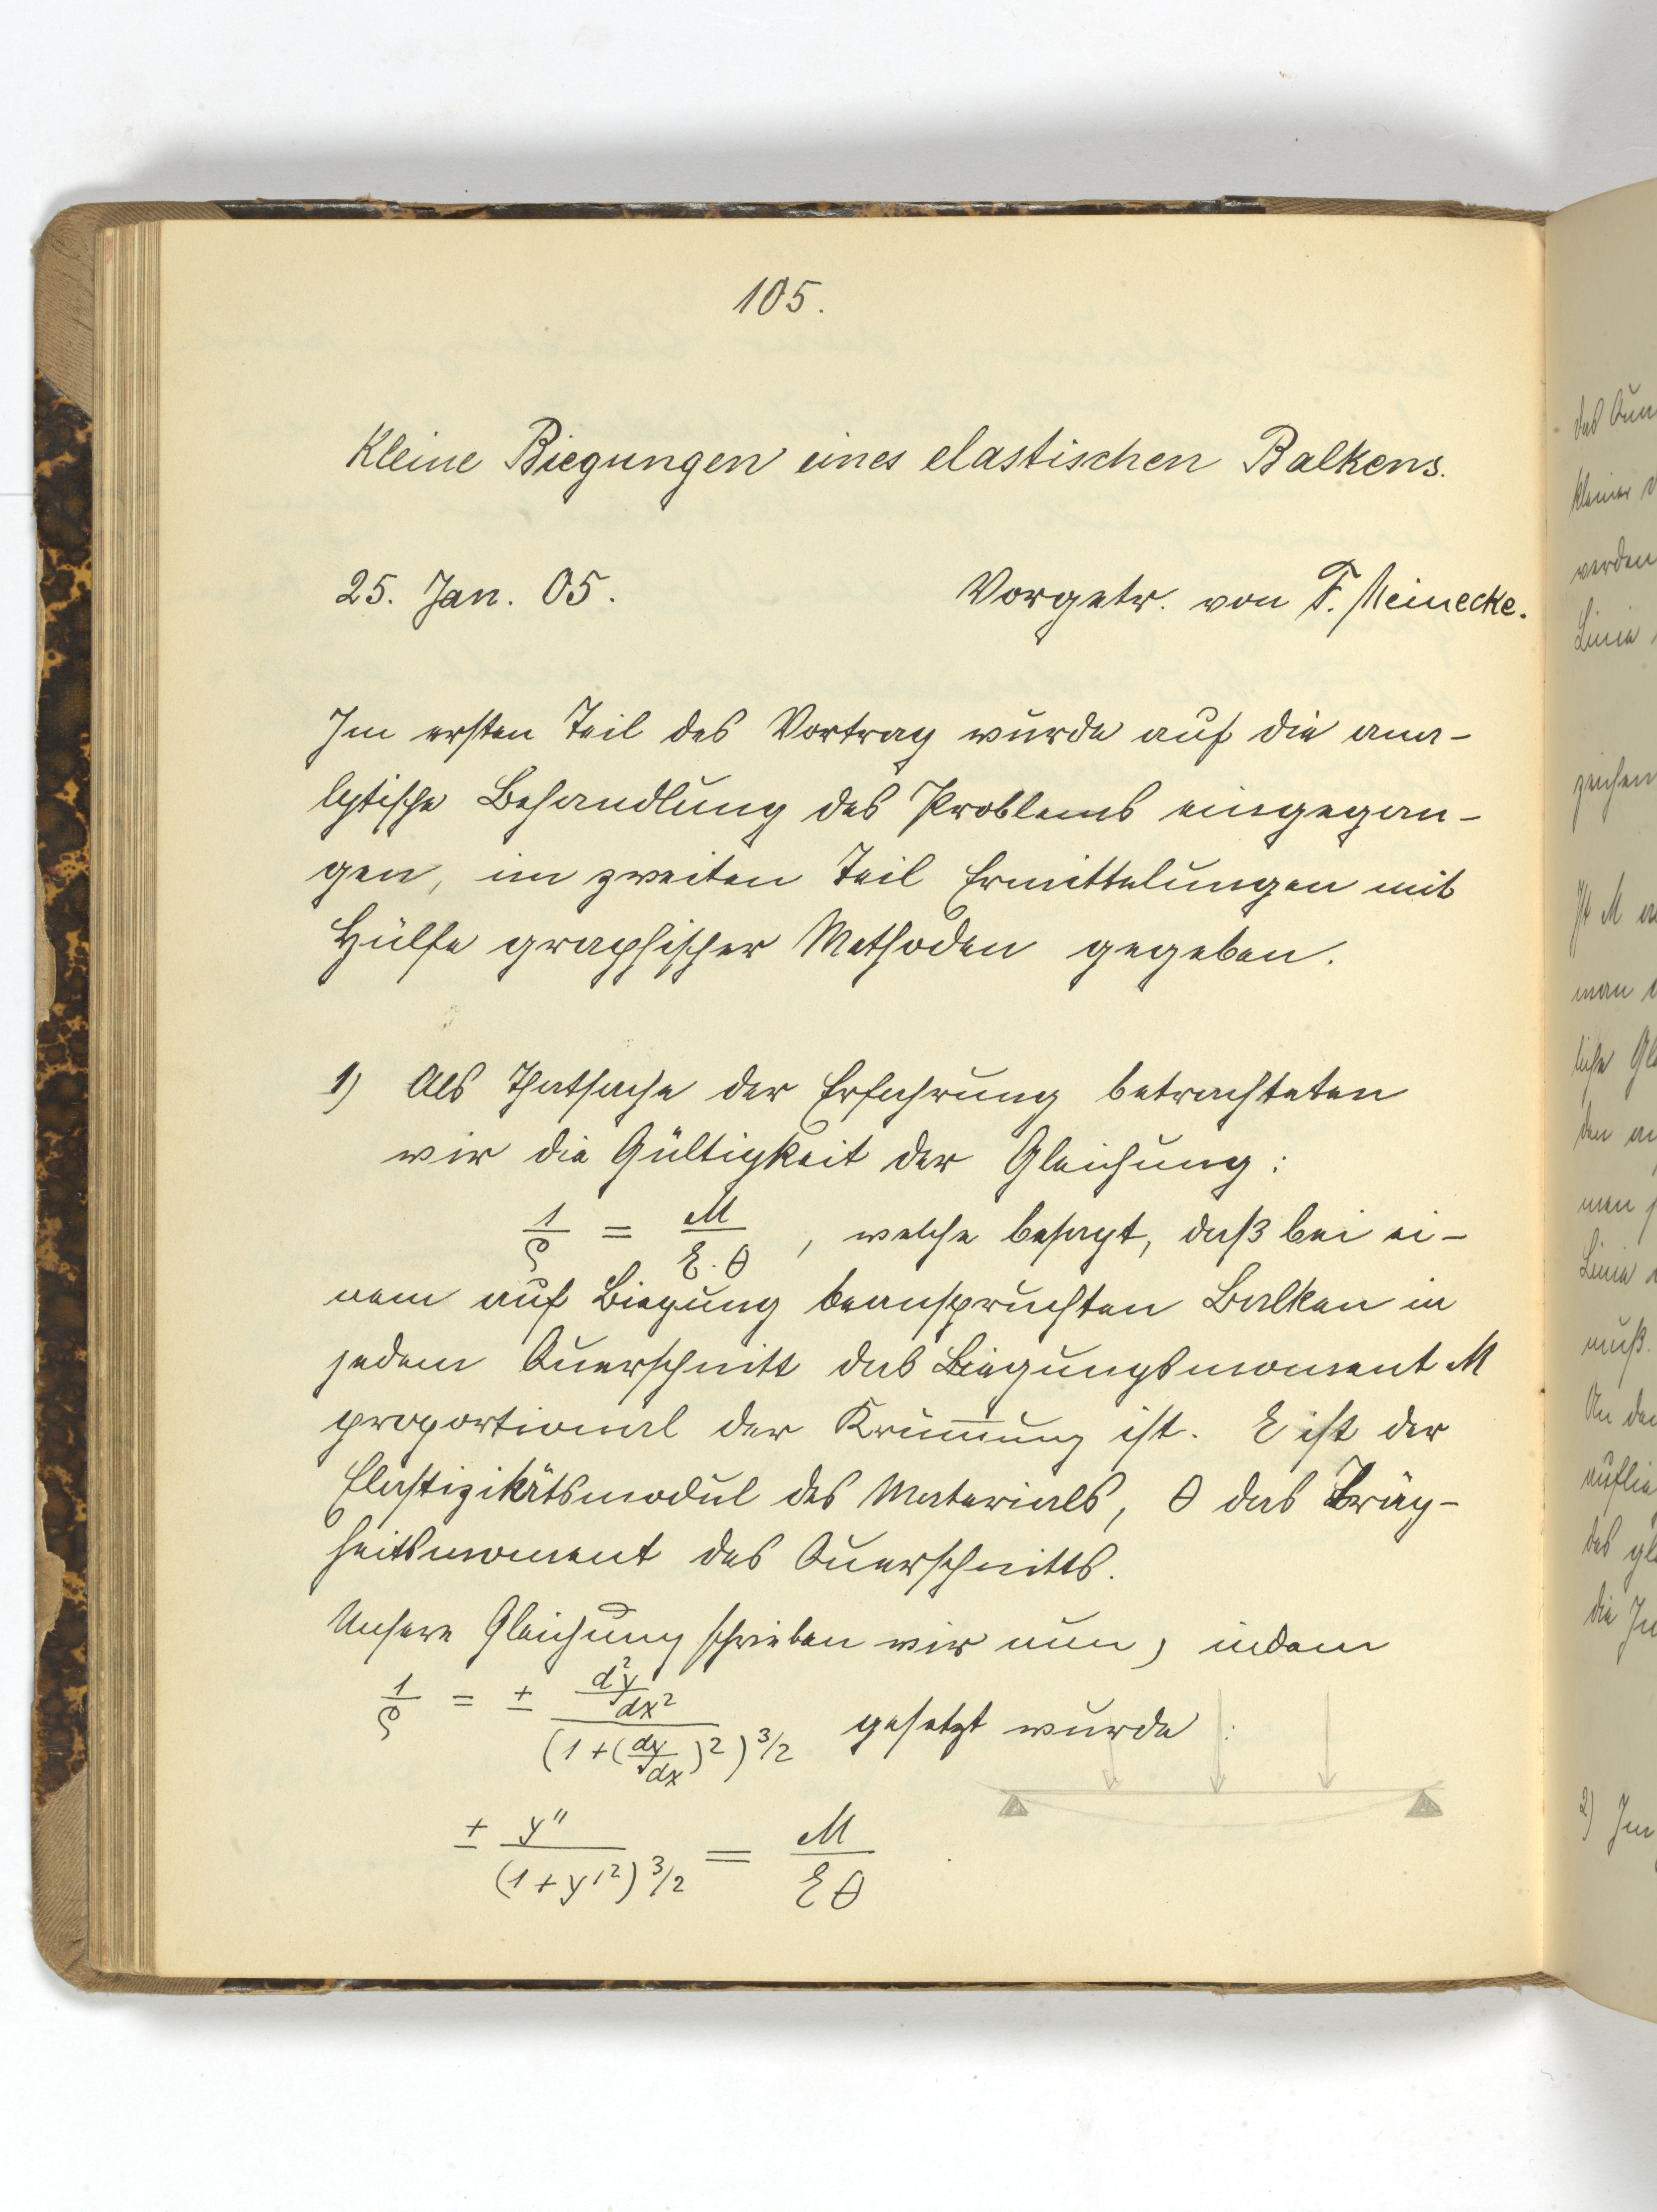 105.
Kleine Biegungen eines elastischen Balkens.
25. Jan. 05.
Vorgetr. von F. Meinecke.
Im ersten Teil des Vortrag wurde auf die ana-
lytische Behandlung des Problems eingegan-
gen, im zweiten Teil Ermittelungen mit
Hülfe graphischer Methoden gegeben.
1) Als Thatsache der Erfahrung betrachteten
wir die Gültigkeit der Gleichung:
1/ρ = M/(E·θ), welche besagt, daß bei ei-
nem auf Biegung beanspruchten Balken in
jedem Querschnitt das Biegungsmoment M
proportional der Krüm̅ung ist. E ist der
Elastizitätsmodul des Materials, θ das Träg-
heitsmoment des Querschnitts.
Unsere Gleichung schrieben wir nun, indem
1/ρ = ± (d²y/dx²)/(1+(dy/dx)²)^3/2 gesetzt wurde:
± y″/(1+y′²)^3/2 = M/(Eθ)
das
kleiner
werden
Linie
zeichen
Ist M
man
liche Gl
den
men
Linie
muß.
An der
auflie
des gl
die
2) Im